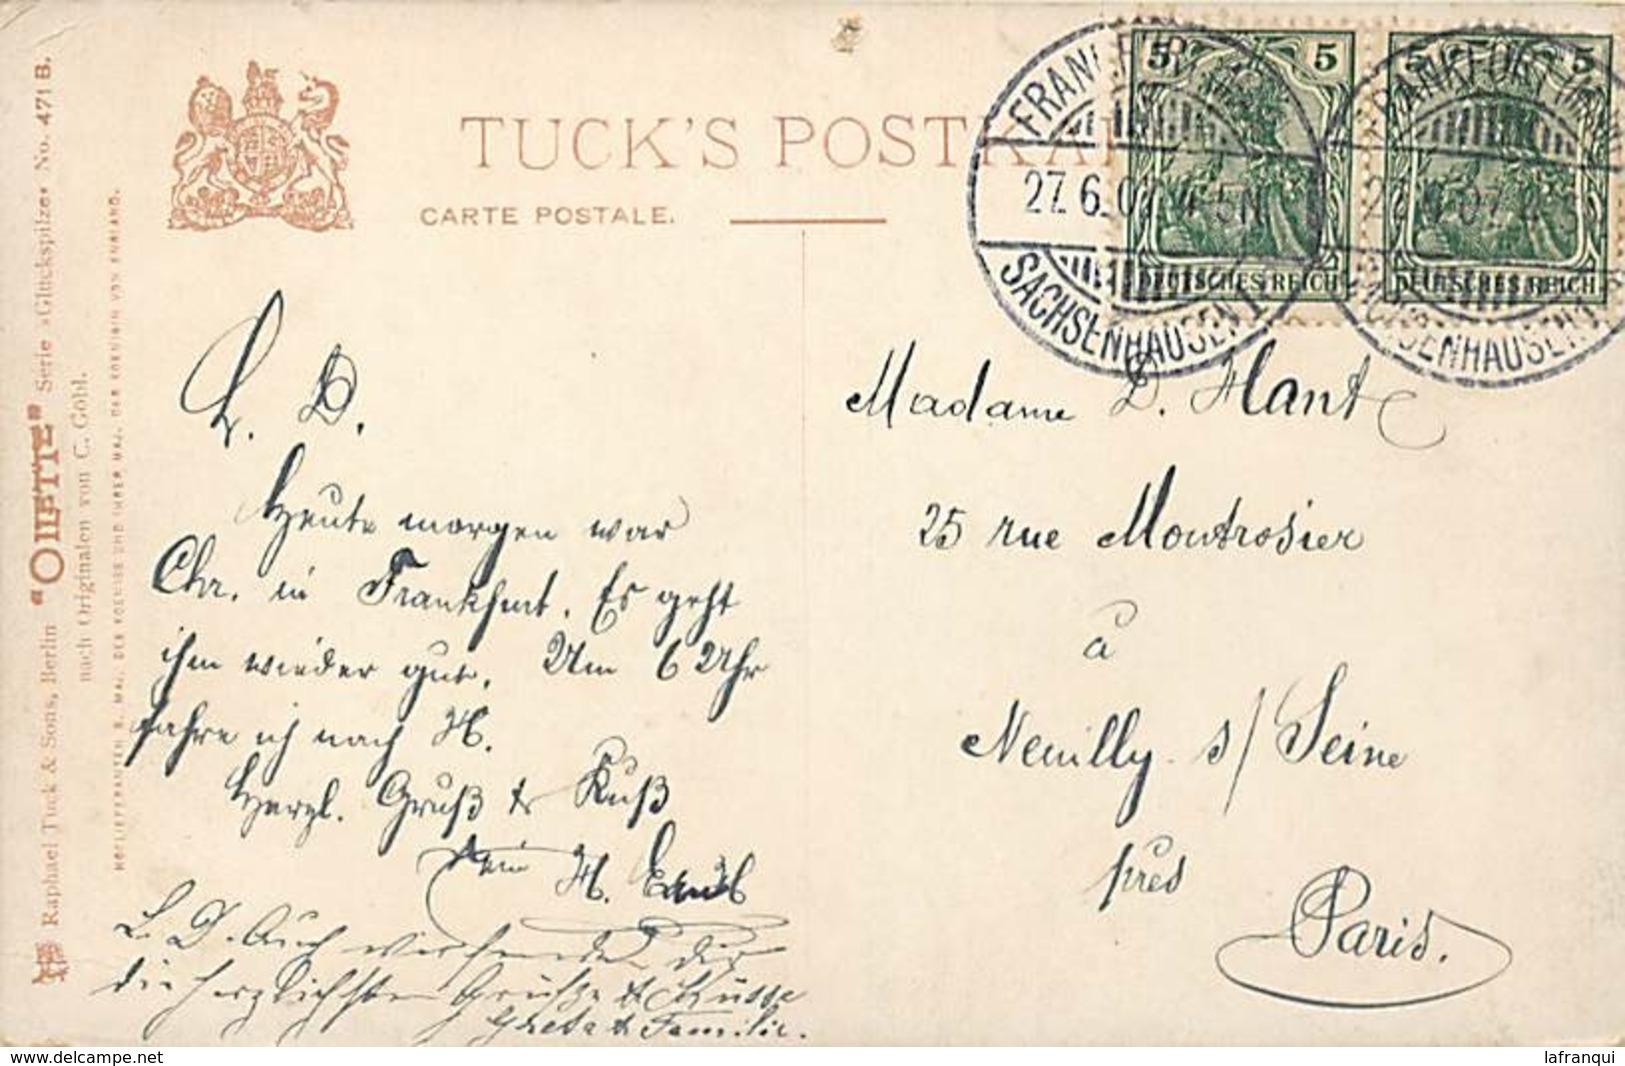 TUCK'S POSTKA
CARTE POSTALE.
FRANKFUR
27.6.07. 4-5N
SACHSENHAUSEN 1
FRANKFURT (MAIN)
SACHSENHAUSEN 1
5 5
DEUTSCHES REICH
5 5
DEUTSCHES REICH
Raphael Tuck & Sons, Berlin "OILETTE" Serie »Glückspilze« No. 471 B.
nach Originalen von C. Göbl.
HOFLIEFERANTEN S. MAJ. DES KOENIGS UND IHRER MAJ. DER KOENIGIN VON ENGLAND.
L. D.
Heute morgen war
Chr. in Frankfurt. Es geht
ihm wieder gut. Um 6 Uhr
fahre ich nach H.
Herzl. Gruß & Kuß
Dein H.
L. D. Auch wir senden Dir
die herzlichsten Grüße & Küsse
Greta & Familie.
Madame D. Hant
25 rue Montrosier
à
Neuilly s/ Seine
près
Paris.
delcampe.net
lafranqui